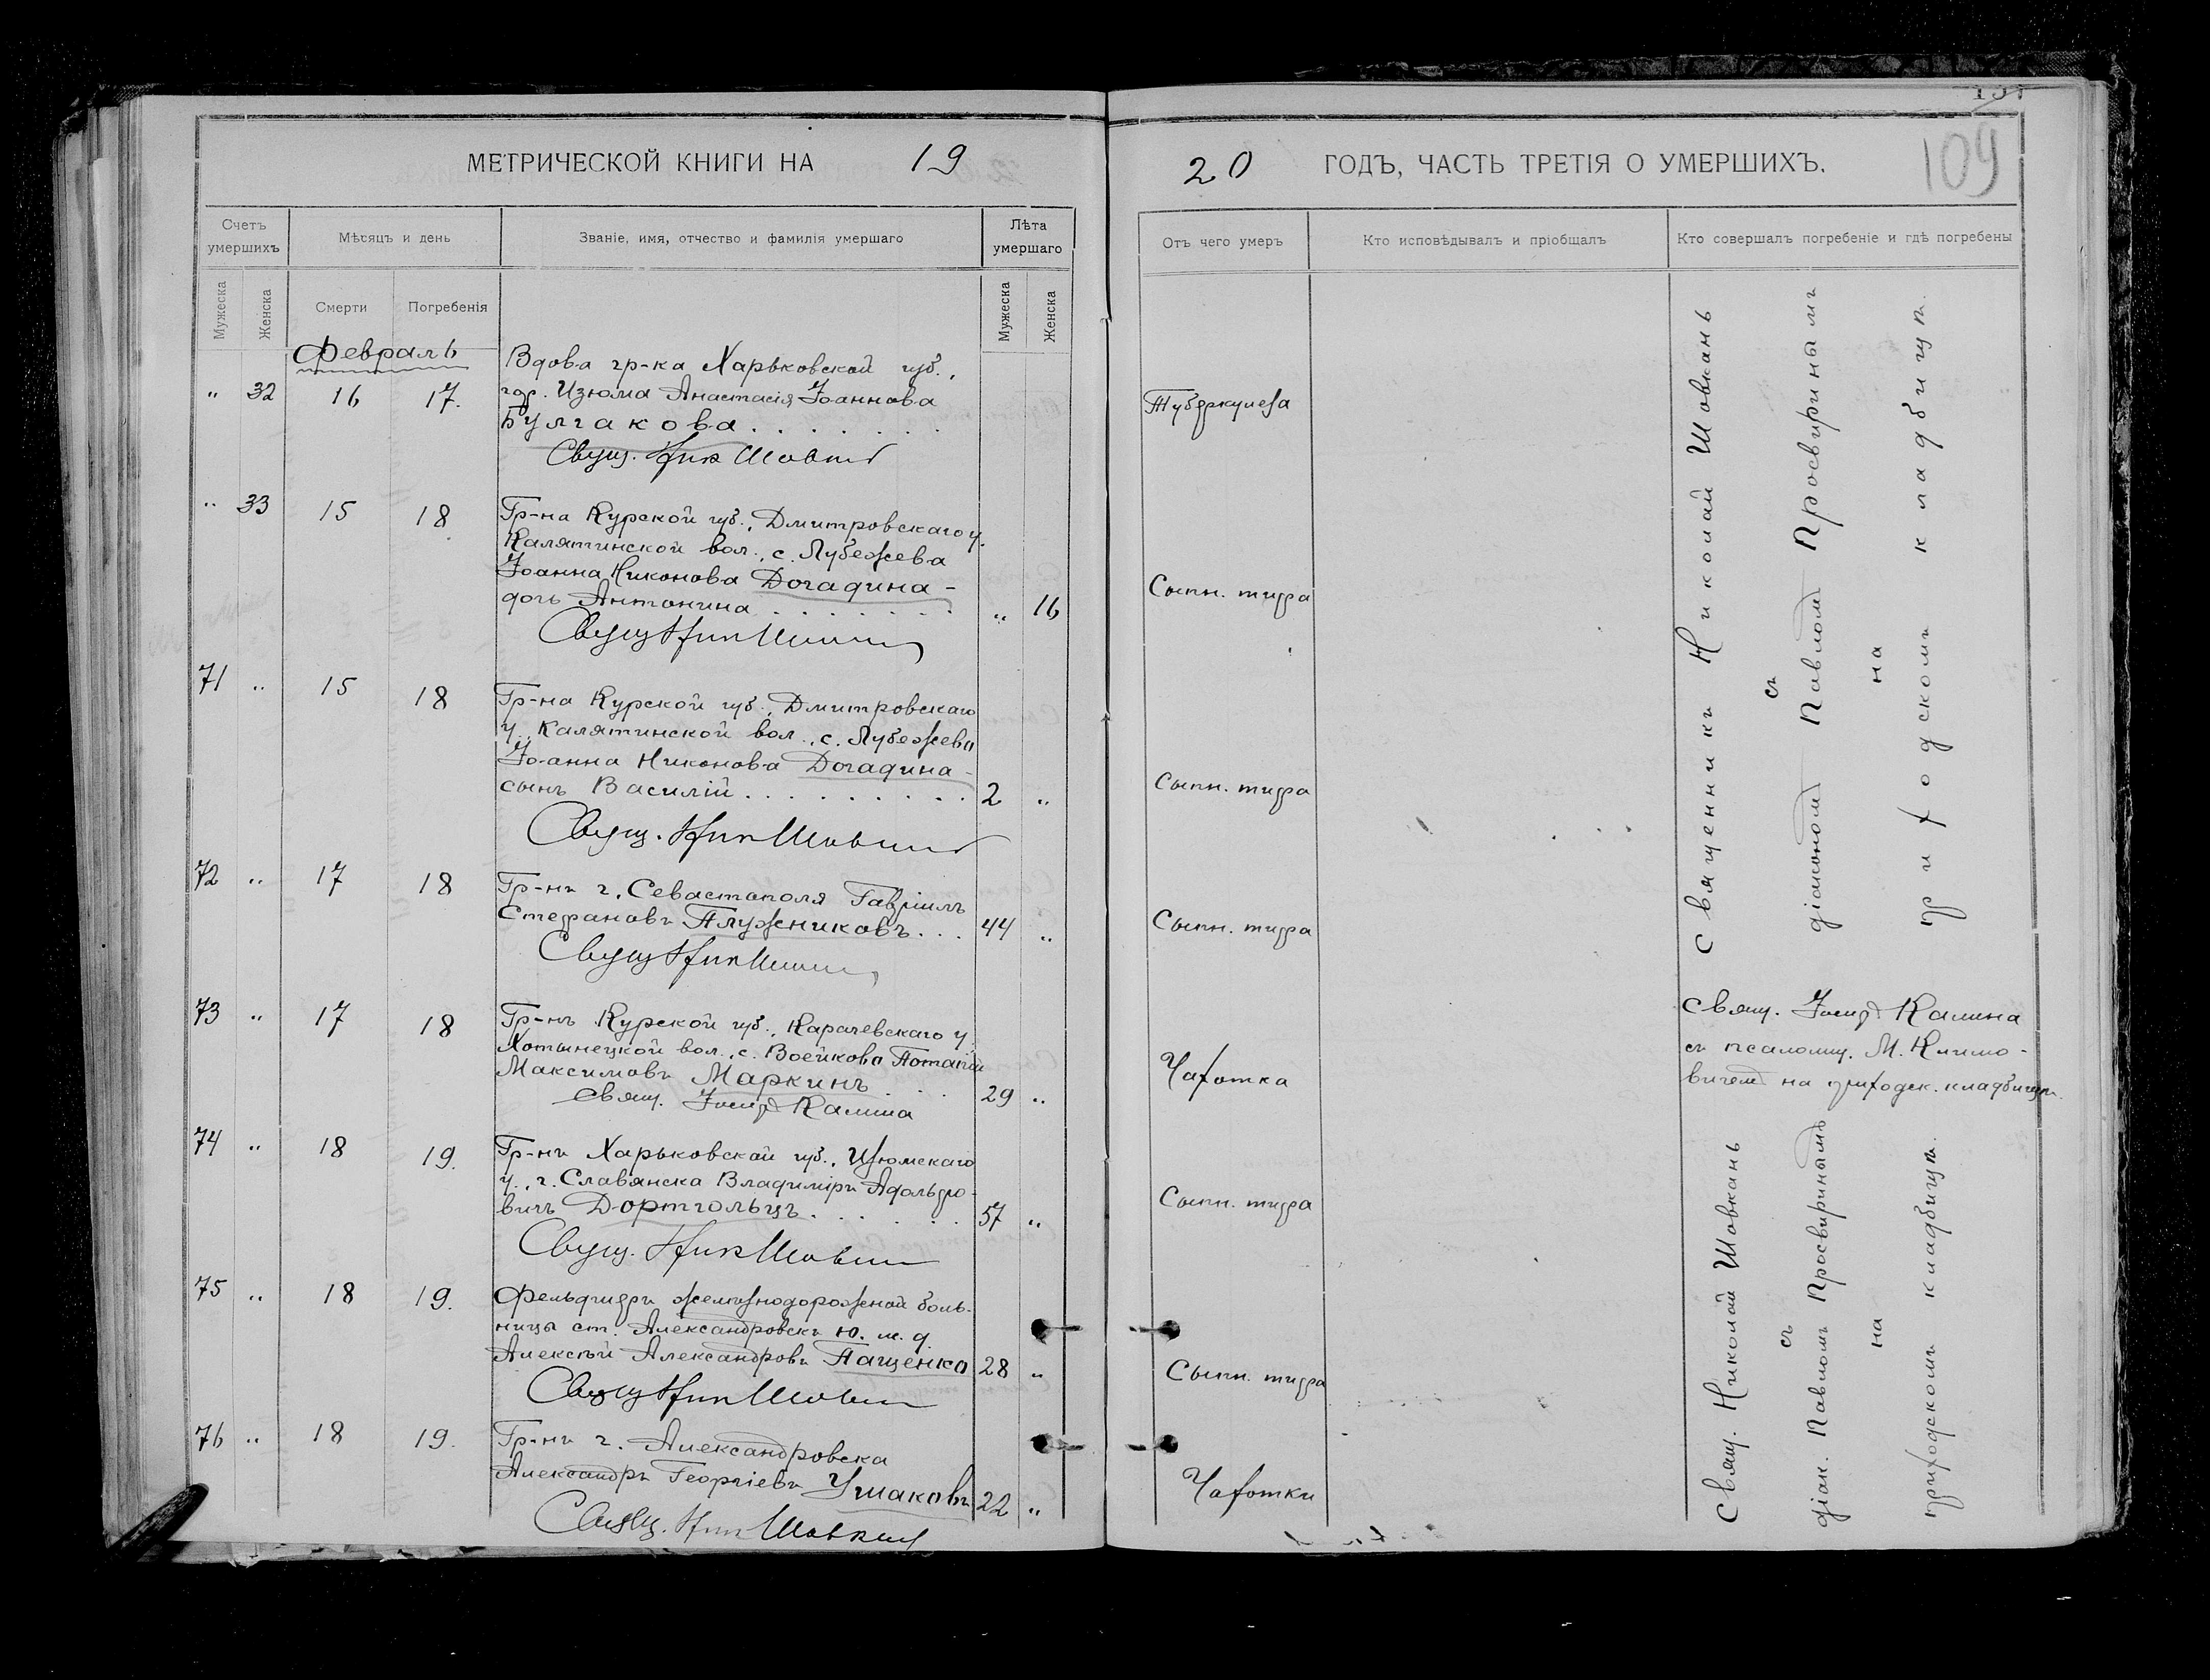 МЕТРИЧЕСКОЙ КНИГИ НА 19
Счетъ умершихъ
Мѣсяцъ и день
Званіе, имя, отчество и фамилія умершаго
Лѣта умершаго
Мужеска
Женска
Смерти
Погребенія
Мужеска
Женска
Февраль
„ 32 16 17.
Вдова гр-ка Харьковской губ.,
гор. Изюма Анастасія Іоаннова
Булгакова
Свящ. Ник Шовкан
„ 33 15 18
Гр-на Курской губ., Дмитровскаго у.
Калятинской вол., с. Лубежева
Іоанна Никонова Догадина -
дочь Антонина „ 16
Свящ Ник
71 „ 15 18
Гр-на Курской губ., Дмитровскаго
у., Калятинской вол., с. Лубежева
Іоанна Никонова Догадина -
сынъ Василій 2 „
Свящ. Ник Шовкан
72 „ 17 18
Гр-нъ г. Севастополя Гавріилъ
Стефановъ Плужниковъ 44 „
Свящ Ник
73 „ 17 18
Гр-нъ Курской губ., Карачевскаго у.
Хотынецкой вол., с. Воейкова Потапій
Максимовъ Маркинъ 29 „
Свящ. Іосиф Калина
74 „ 18 19.
Гр-нъ Харьковской губ., Изюмскаго
у., г. Славянска Владиміръ Адольфо-
вичъ Дортгольцъ 57 „
Свящ. Ник Шовкан
75 „ 18 19.
Фельдшеръ желѣзнодорожной боль-
ницы ст. Александровскъ Ю. ж. д.
Алексѣй Александровъ Пащенко 28 „
Свящ Ник Шовкан
76 „ 18 19.
Гр-нъ г. Александровска
Александръ Георгіевъ Ушаковъ 22 „
Свящ. Ник Шовкан
109
20 ГОДЪ, ЧАСТЬ ТРЕТІЯ О УМЕРШИХЪ.
Отъ чего умеръ
Кто исповѣдывалъ и пріобщалъ
Кто совершалъ погребеніе и гдѣ погребены
Туберкулеза
Сыпн. тифа
Сыпн. тифа
Сыпн. тифа
Чахотка
Сыпн. тифа
Сыпн. тифа
Чахотки
Священникъ Николай Шовкань
съ
діакономъ Павломъ Просвиринымъ
на
приходскомъ кладбищѣ.
Свящ. Іосиф Калина
съ псаломщ. М. Климо-
вичемъ на приходск. кладбищѣ.
Свящ. Николай Шовкань
съ
діак. Павломъ Просвиринымъ
на
приходскомъ кладбищѣ.